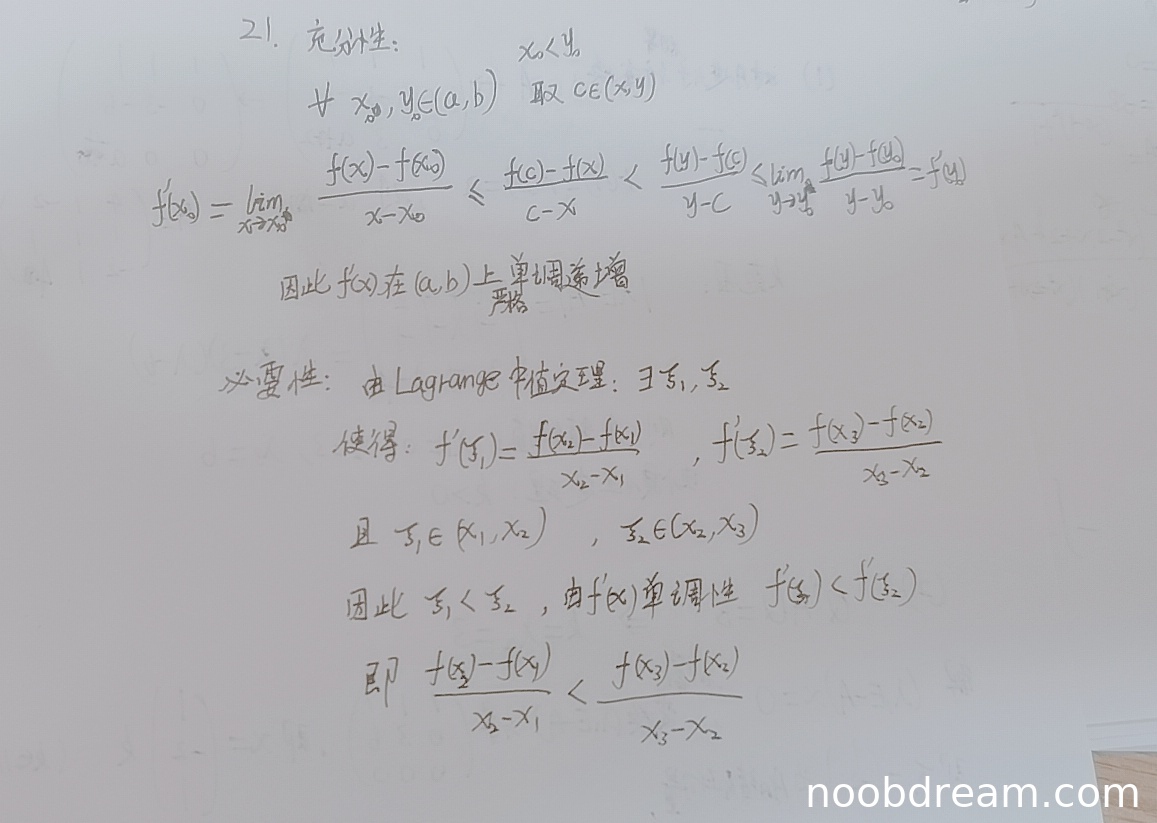 21. 充分性:
x₀<y₀
∀ x₀, y₀∈(a,b) 取 c∈(x,y)
f'(x₀) = lim x→x₀ (f(x)-f(x₀))/(x-x₀) ≤ (f(c)-f(x))/(c-x) < (f(y)-f(c))/(y-c) ≤ lim y→y₀ (f(y)-f(y₀))/(y-y₀) = f'(y₀)
因此 f'(x) 在 (a,b) 上 单调递增
严格
必要性: 由 Lagrange 中值定理: ∃ ξ₁, ξ₂
使得: f'(ξ₁) = (f(x₂)-f(x₁))/(x₂-x₁) , f'(ξ₂) = (f(x₃)-f(x₂))/(x₃-x₂)
且 ξ₁∈(x₁,x₂) , ξ₂∈(x₂,x₃)
因此 ξ₁<ξ₂ , 由f'(x)单调性 f'(ξ₁)<f'(ξ₂)
即 (f(x₂)-f(x₁))/(x₂-x₁) < (f(x₃)-f(x₂))/(x₃-x₂)
noobdream.com